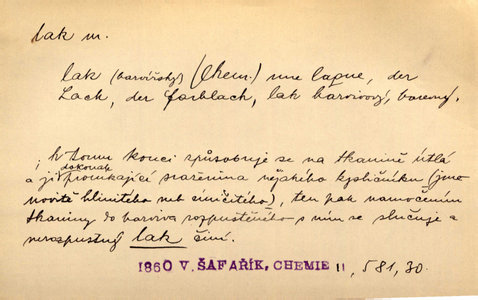 lak m.
lak (barvířský) (Chem.) une laque, der
Lack, der Farblack, lak barvivový, barevný.
k tomu konci způsobuje se na tkanině útlá
a ji dokonale pronikající sraženina nějakého kysličníku (jme-
novitě hlinitého neb ciničitého), ten pak namočením
tkaniny do barviva rozpuštěného s ním se slučuje a
nerozpustný lak činí.
1860 V. ŠAFAŘÍK, CHEMIE II, 581, 30.